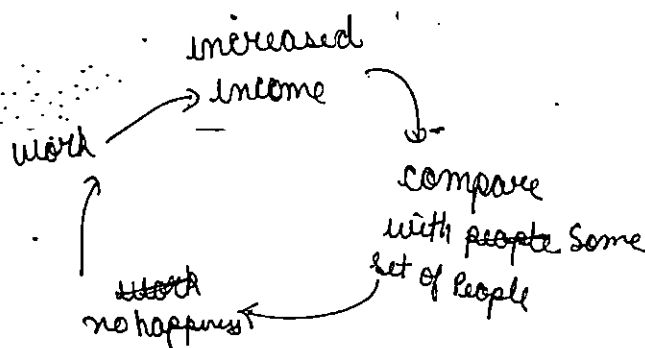 increased
income
work
compare
with people Some
set of People
work
no happiness